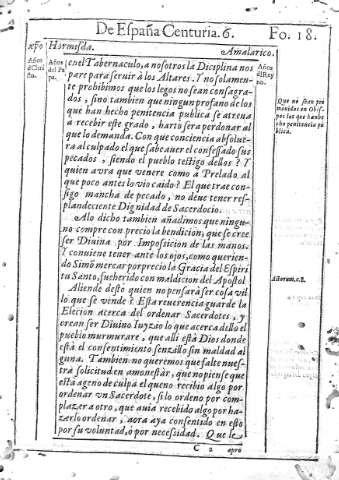 De España Centuria. 6. Fo. 18.
xpo Hormisda. Amalarico.
Años
del Pa
pa.
en el Tabernaculo, a nosotros la Diciplina nos
pare para seruir à los Altares. Y no solamen-
te prohibimos que los legos no sean consagra-
dos, sino tambien que ningun profano de los
que han hecho penitencia publica se atreua
a recebir este grado, harto sera perdonar al
que lo demanda. Con que conciencia absolue-
ra al culpado el que sabe auer el confessado sus
pecados, siendo el pueblo testigo dellos? Y
quien avra que venere como a Prelado al
que poco antes lo vio caido? El que trae con-
sigo mancha de pecado, no deue tener res-
plandeciente Dignidad de Sacerdocio.
A lo dicho tambien añadimos que ningu-
no compre con precio la bendicion, que se cree
ser Diuina por Imposicion de las manos.
Y conuiene tener ante los ojos, como querien-
do Simõ mercar por precio la Gracia del Espiri
tu Santo, fue herido con maldicion del Apostol
Aliende desto quien no pensarà ser cosa vil
lo que se vende? Esta reuerencia guarde la
Elecion acerca del ordenar Sacerdotes, y
crean ser Diuino Iuyzio lo que acerca dello el
pueblo murmurare, que alli està Dios donde
està el consentimiento senzillo sin maldad al
guna. Tambien no queremos que falte nues-
tra solicitud en amonestàr, que no piense que
està ageno de culpa el que no recibio algo por
ordenar vn Sacerdote, si lo ordeno por com-
plazer a otro, que auia recebido algo por ha-
zerlo ordenar, aora aya consentido en esto
por su voluntad, ò por necessidad. Que le
C 2 apro
Que no sean pro
mouidos en Obis-
pos los que hauie
do penitencia pu
blica.
Actorum. c. 8.